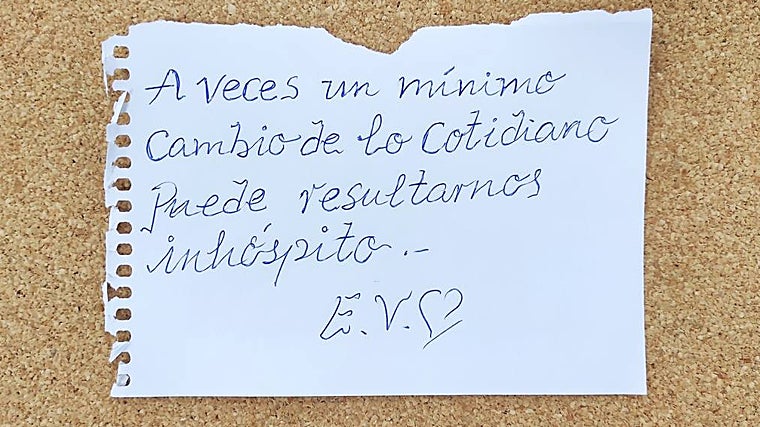 A veces un mínimo
Cambio de lo Cotidiano
Puede resultarnos
inhóspito.-
E.V.♡